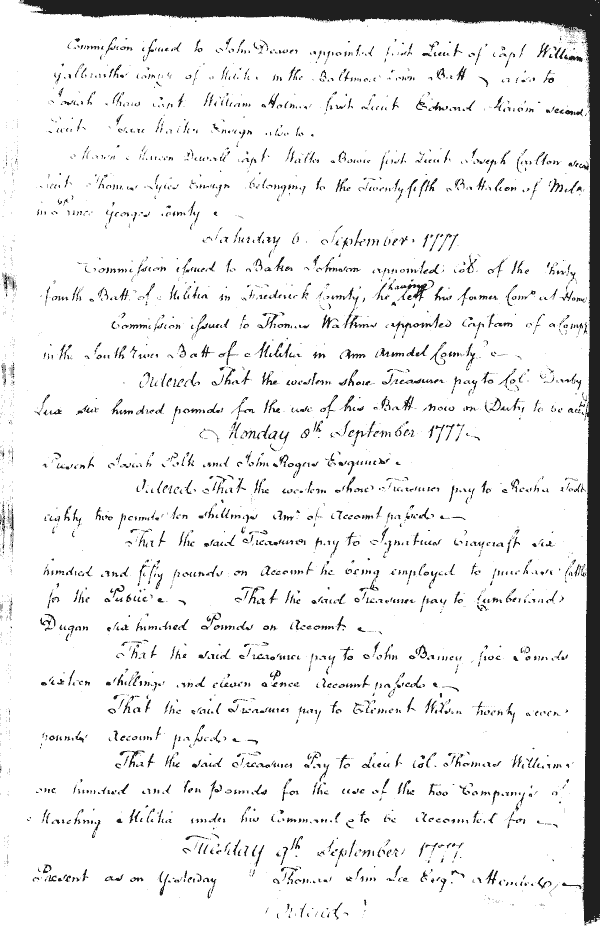 Commission issued to John Deaver appointed first Lieut of Capt William
Galbraiths Compy of Militia in the Baltimore Town Batt also to
Josiah Shaw Capt William Holmes first Lieut Edward second
Lieut Isaac Walter Ensign also to
Marsh Mareen Duvall Capt Walter Bowie first Lieut Joseph Carlton second
Lieut Thomas Ensign belonging to the Twentyfifth Battalion of Mila
in Prince Georges County
Saturday 6. September 1777
Commission issued to Baker Johnson appointed Col. of the Thirty
fourth Batt of Militia in Frederick County, he having left his former Comn at Home
Commission issued to Thomas Watkins appointed Captain of a Compy
in the South River Batt of Militia in Ann Arundel County
Ordered That the western shore Treasurer pay to Col. Darby
Lux six hundred pounds for the use of his Batt now on Duty to be
Monday 8th September 1777
Present Josiah Polk and John Rogers Esquires
Ordered That the western shore Treasurer pay to
eighty two pounds ten shillings Amt of Account passed
That the said Treasurer pay to Ignatius Craycraft six
hundred and fifty pounds on Account he being employed to purchase Cattle
for the Public That the said Treasurer pay to Cumberland
Dugan six hundred Pounds on Account.
That the said Treasurer pay to John Barney five Pounds
sixteen shillings and eleven Pence Account passed
That the said Treasurer pay to Clement Wilson twenty seven
pounds Account passed
That the said Treasurer Pay to Lieut Col. Thomas Williams
one hundred and ten pounds for the use of the two Company's of
Marching Militia under his Command to be Accounted for
Tuesday 9th September 1777
Present as on Yesterday Thomas Sim Lee Esqr attended
Ordered